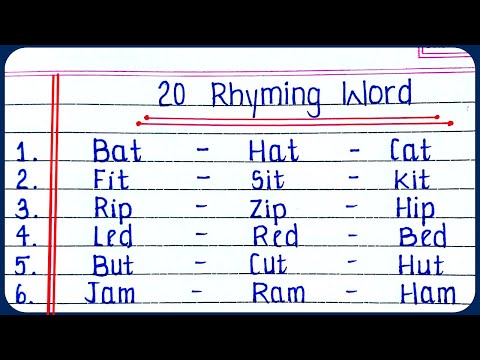 20 Rhyming Word
1. Bat - Hat - Cat
2. Fit - Sit - Kit
3. Rip - Zip - Hip
4. Led - Red - Bed
5. But - Cut - Hut
6. Jam - Ram - Ham